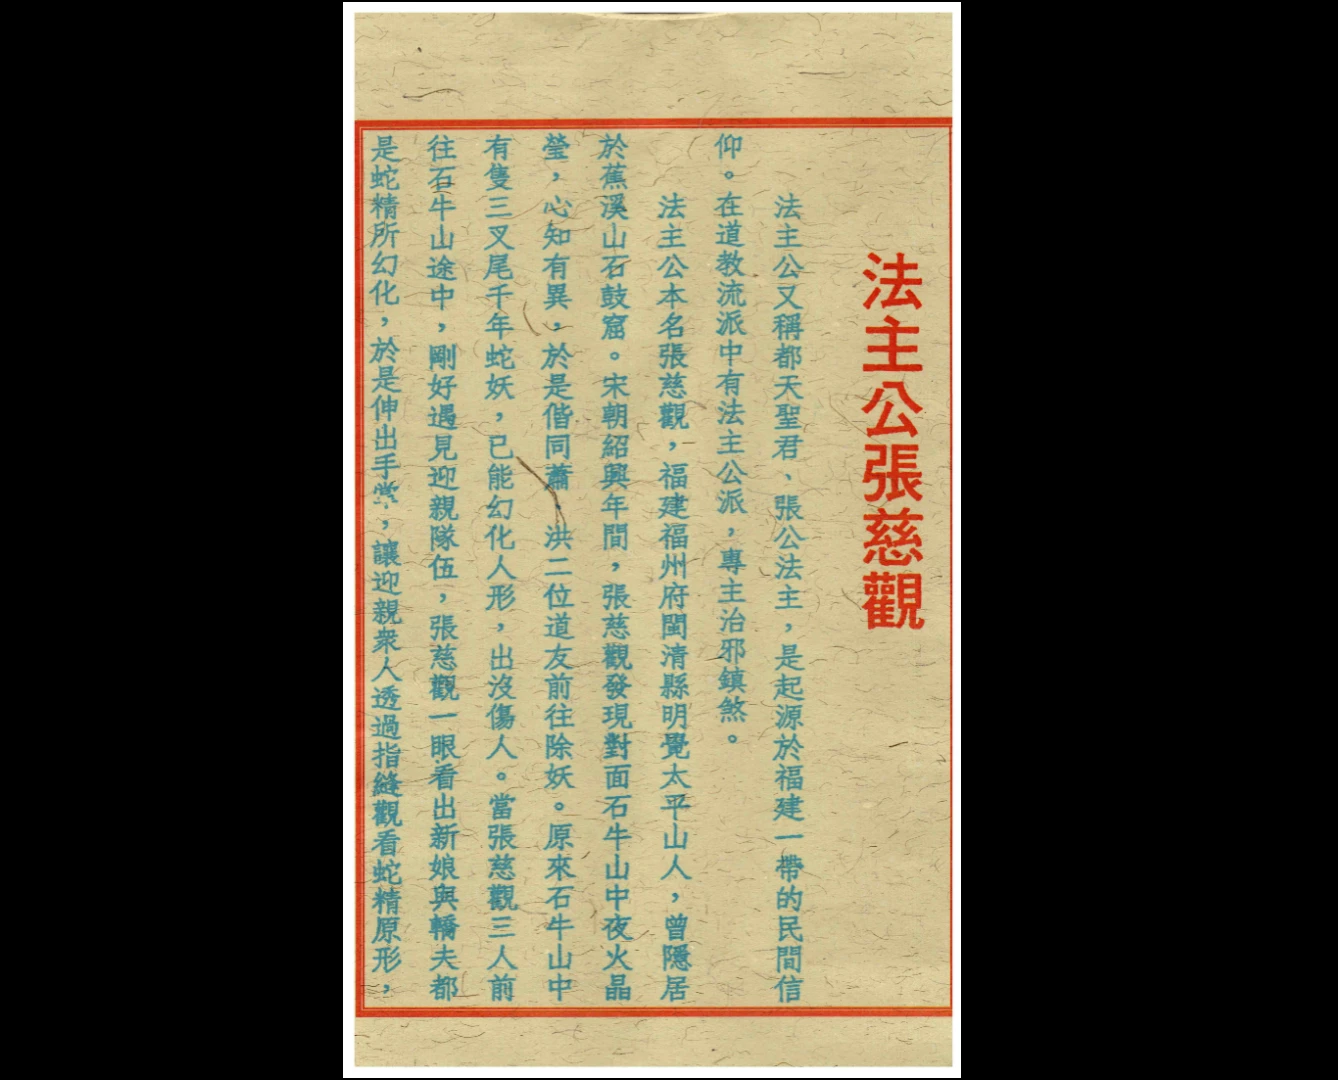 法主公張慈觀
法主公又稱都天聖君、張公法主，是起源於福建一帶的民間信
仰。在道教流派中有法主公派，專主治邪鎮煞。
法主公本名張慈觀，福建福州府閩清縣明覺太平山人，曾隱居
於蕉溪山石鼓窟。宋朝紹興年間，張慈觀發現對面石牛山中夜火晶
瑩，心知有異，於是偕同蕭、洪二位道友前往除妖。原來石牛山中
有隻三叉尾千年蛇妖，已能幻化人形，出沒傷人。當張慈觀三人前
往石牛山途中，剛好遇見迎親隊伍，張慈觀一眼看出新娘與轎夫都
是蛇精所幻化，於是伸出手掌，讓迎親眾人透過指縫觀看蛇精原形，